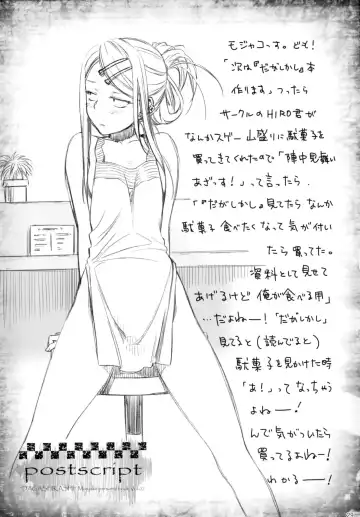 モジャコっす。ども!
「次は『だがしかし』本
作ります」つったら
サークルのHIRO君が
なんかスゲー山盛りに駄菓子を
買ってきてくれたので「陣中見舞い
あざっす!」って言ったら、
「『だがしかし』見てたらなんか
駄菓子食べたくなって気が付い
たら買ってた。
資料として見せて
あげるけど俺が食べる用」
…だよねー!「だがしかし」
見てると(読んでると)
駄菓子を見かけた時
「あ!」ってなっちゃう
よねー!
んで気がついたら
買ってるよねー!
わかるー!
postscript